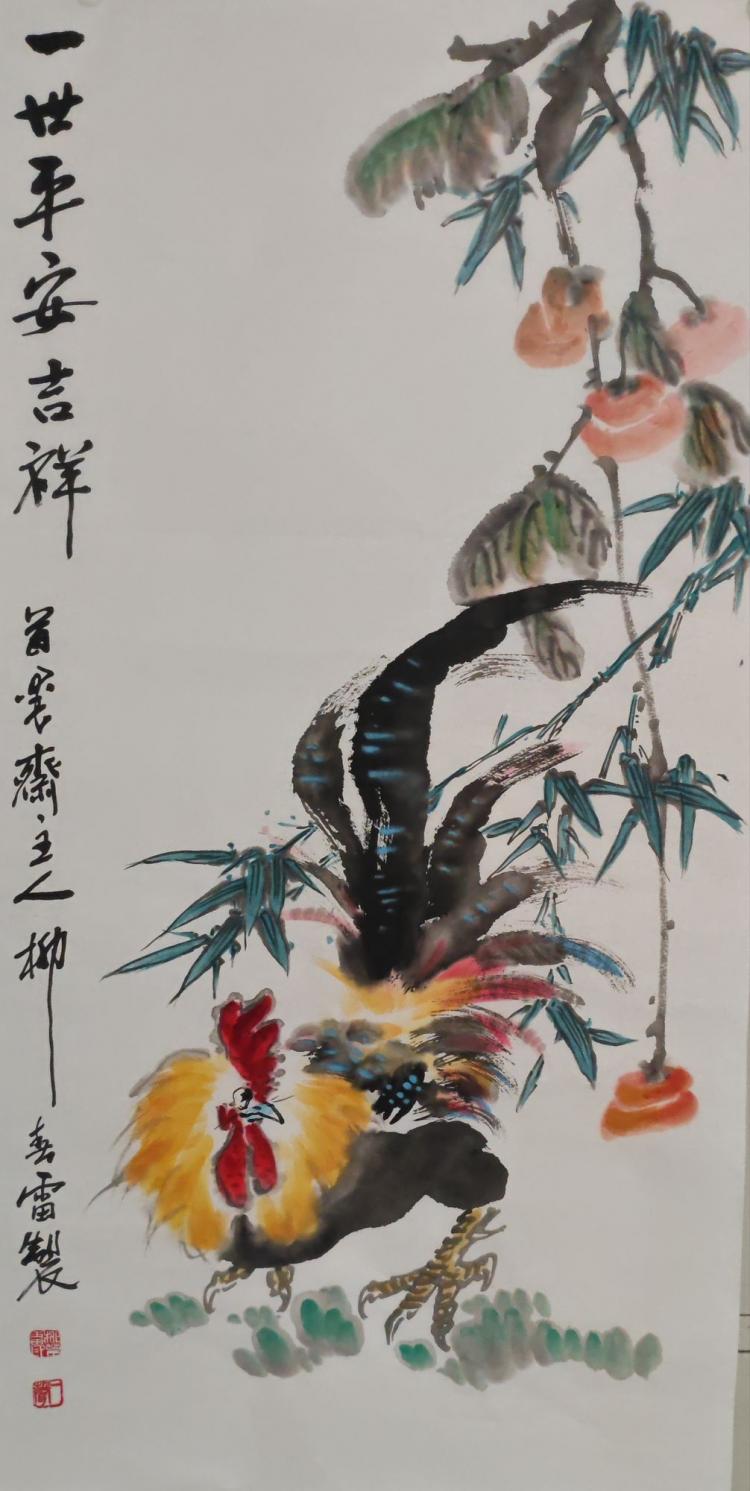 一世平安吉祥
斋主人柳春雷製